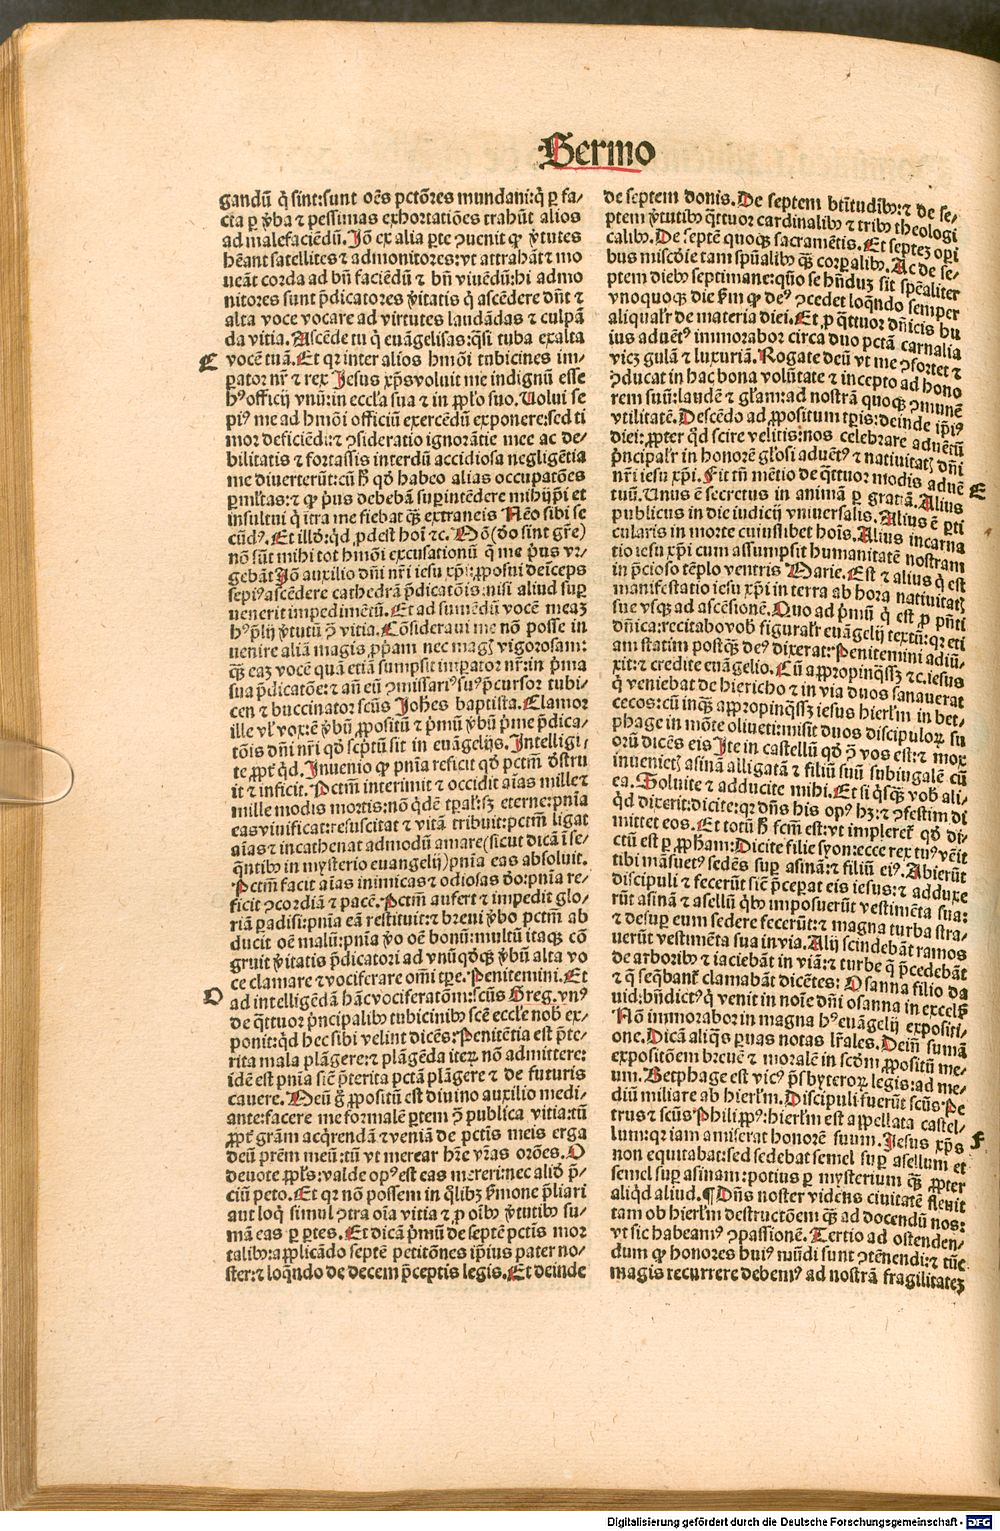 Sermo
gandū q̄ sint:sunt oēs pctōres mundani:q̄ ꝑ fa⸗
cta ꝑ ꝟba ⁊ pessimas exhortatiōes trahūt alios
ad malefaciēdū. Jō ex alia ꝑte ꝯuenit ꝙ ꝟtutes
hēant satellites ⁊ admonitores:vt attrahāt ⁊ mo
ueāt corda ad bn̄ faciēdū ⁊ bn̄ viuēdū:hi admo
nitores sunt p̄dicatores ꝟitatis q̄ ascēdere dn̄t ⁊
alta voce vocare ad virtutes laudādas ⁊ culpā
da vitia. Ascēde tu q̄ euāgelisas:q̄si tuba exalta
C
vocē tuā. Et qꝛ inter alios hmōi tubicines im⸗
ꝑator nr̄ ⁊ rex Jesus xp̄s voluit me indignū esse
hꝰ officij vnū:in eccl'a sua ⁊ in ꝓpl'o suo. Uolui se
piꝰ me ad hmōi officiū exercēdū exponere:sed ti
mor deficiēdi:⁊ ꝯsideratio ignorātie mee ac de⸗
bilitatis ⁊ fortassis interdū accidiosa negligētia
me diuerterūt:cū h̄ qd̄ habeo alias occupatōes
ꝑml'tas:⁊ ꝙ p̄us debebā suꝑintēdere mihijp̄i et
insultui q̄ itra me fiebat q̄ꝫ extraneis Nēo sibi se
cūdꝰ. Et illd̄:q̄d ꝓdest hoī ⁊c. Mō (do sint gr̄e)
nō sūt mihi tot hmōi excusationū q̄ me p̄us vr⸗
gebāt Jō auxilio dn̄i nr̄i iesu xp̄i:ꝓposui deīceps
sepiꝰ ascēdere cathedrā p̄dicatōis:nisi aliud suꝑ
uenerit impedimētū. Et ad sumēdū vocē meaꝫ
hꝰ p̄lij ꝟtutū ꝯ̄ vitia. Cōsideraui me nō posse in
uenire aliā magis ꝓpam nec magꝭ vigorosam:
q̄ꝫ eaꝫ vocē quā etiā sumpsit imꝑator nr̄:in p̄ma
sua p̄dicatōe:⁊ aū eū ꝯmissariꝰ suꝰ p̄cursor tubi⸗
cen ⁊ buccinator scūs Joh̄es baptista. Clamor
ille vl' vox:ē ꝟbū ꝓpositū ⁊ p̄mū ꝟbū p̄me p̄dica⸗
tōis dn̄i nr̄i qd̄ scp̄tū sit in euāgelijs. Jntelligi⸗
te ꝓpt̄ q̄d. Jnuenio ꝙ pn̄ia reficit qd̄ pctm̄ dstru
it ⁊ inficit. Pctm̄ interimit ⁊ occidit aīas mille ⁊
mille modis mortis:nō q̄dē tꝑal':sꝫ eterne:pn̄ia
eas viuificat:resuscitat ⁊ vitā tribuit:pctm̄ ligat
aīas ⁊ incathenat admodū amare(sicut dicā ī se⸗
q̄ntibꝰ in mysterio euangelij)pn̄ia eas absoluit.
Pctm̄ facit aīas inimicas ⁊ odiosas do:pn̄ia re⸗
ficit ꝯcordiā ⁊ pacē. Pctm̄ aufert ⁊ impedit glo⸗
riā ꝑadisi:pn̄ia eā restituit:⁊ breui ꝟbo pctm̄ ab
ducit oē malū:pn̄ia ꝟo oē bonū:multū itaqꝫ cō
gruit ꝟitatis p̄dicatori ad vnūqd̄qꝫ ꝟbū alta vo
ce clamare ⁊ vociferare om̄i tꝑe. Penitemini. Et
D
ad intelligēdā hāc vociferatōm:scūs Greg. vnꝰ
de q̄ttuor p̄ncipalibꝰ tubicinibꝰ scē eccl'e nob̄ ex⸗
ponit:q̄d hec sibi velint dicēs:Penitētia est p̄te⸗
rita mala plāgere:⁊ plāgēda iteꝝ nō admittere:
idē est pn̄ia sic̄ p̄terita pctā plāgere ⁊ de futuris
cauere. Meū g̊ ꝓpositū est diuino auxilio medi⸗
ante:facere me formalē ꝑtem ꝯ̄ publica vitia:tū
ꝓpt̄ grām acq̄rendā ⁊ veniā de pctis meis erga
deū prēm meū:tū vt merear hr̄e vr̄as orōes. O
deuote ꝓpl's:valde opꝰ est eas mereri:nec aliō p̄⸗
ciū peto. Et qꝛ nō possem in q̄libꝫ ẜmone p̄liari
aut loq̄ simul ꝯtra oīa vitia ⁊ ꝓ oībꝰ ꝟtutibꝰ su⸗
mā eas ꝑ ꝑtes. Et dicā p̄mū de septē pctis mor
talibꝰ:applicādo septē petitōnes ip̄ius pater no⸗
ster:⁊ loq̄ndo de decem p̄ceptis legis. Et deinde
de septem donis. De septem btītudībꝰ:⁊ de se⸗
ptem ꝟtutibꝰ q̄ttuor cardinalibꝰ ⁊ tribꝰ theologi
calibꝰ. De septē quoqꝫ sacramētis. Et septeꝫ opi
bus miscd̄ie tam spūalibꝰ q̄ꝫ corꝑalibꝰ. Ac de se⸗
ptem diebꝰ septimane:quō se hn̄duꝫ sit spēaliter
vnoquoqꝫ die ẜm ꝙ deꝰ ꝯcedet loq̄ndo semper
aliqualr̄ de materia diei. Et ꝓ q̄ttuor dn̄icis hu
ius aduētꝰ immorabor circa duo pctā carnalia
vicꝫ gulā ⁊ luxuriā. Rogate deū vt me ꝯfortet ⁊
ꝯducat in hac bona volūtate ⁊ incepto ad hono
rem suū:laudē ⁊ gl'am:ad nostrā quoqꝫ ꝯmunē
vtilitatē. Descēdo ad ꝓpositum tꝑis:deinde ip̄iꝰ
diei:ꝓpter q̄d scire velitis:nos celebrare aduētū
p̄ncipalr̄ in honorē gl'osi aduētꝰ ⁊ natiuitatꝭ dn̄i
nr̄i iesu xp̄i. Fit tn̄ mētio de q̄ttuor modis aduē
E
tuū. Unus ē secretus in animā ꝑ gratiā. Alius
publicus in die iudicij vniuersalis. Alius ē ꝑti
cularis in morte cuiuslibet hoīs. Alius incarna
tio iesu xp̄i cum assumpsit humanitatē nostram
in p̄cioso tēplo ventris Marie. Est ⁊ alius q̄ est
manifestatio iesu xp̄i in terra ab hora natiuitatꝭ
sue vsqꝫ ad ascēsionē. Quo ad p̄mū q̄ est ꝓ pn̄ti
dn̄ica:recitabo vob̄ figuralr̄ euāgelij textū:qꝛ eti
am statim postq̄ꝫ deꝰ dixerat:Penitemini adiū⸗
xit:⁊ credite euāgelio. Cū appropinq̄ssꝫ ⁊c. iesus
q̄ veniebat de hiericho ⁊ in via duos sanauerat
cecos:cū inq̄ꝫ appropinq̄ssꝫ iesus hierl'm in bet⸗
phage in mōte oliueti:misit duos discipuloꝝ su
orū dicēs eis Jte in castellū qd̄ ꝯ̄ vos est:⁊ mox
inuenietꝭ asinā alligatā ⁊ filiū suū subiugalē cū
ea. Soluite ⁊ adducite mihi. Et si q̄sq̄ꝫ vob̄ ali⸗
q̄d dixerit:dicite:qꝛ dn̄s his opꝰ hꝫ:⁊ ꝯfestim di
mittet eos. Et totū h̄ fcm̄ est:vt impleretr̄ qd̄ di⸗
ctū est ꝑ ꝓph̄am:Dicite filie syon:ecce rex tuꝰ vēit
tibi māsuetꝰ sedēs suꝑ asinā:⁊ filiū eiꝰ. Abierūt
discipuli ⁊ fecerūt sic̄ p̄ceꝑat eis iesus:⁊ adduxe
rūt asinā ⁊ asellū q̄bꝰ imposuerūt vestimēta sua:
⁊ desuꝑ eum sedere fecerūt:⁊ magna turba stra⸗
uerūt vestimēta sua in via. Alij scindebāt ramos
de arboribꝰ ⁊ iaciebāt in viā:⁊ turbe q̄ p̄cedebāt
⁊ q̄ seq̄bant̄ clamabāt dicētes: Osanna filio da
uid:bn̄dictꝰ q̄ venit in noīe dn̄i osanna in excelẜ
Nō immorabor in magna hꝰ euāgelij expositi⸗
one. Dicā aliq̄s ꝑuas notas lr̄ales. Dein̄ sumā
expositōem breuē ⁊ moralē in scd̄m ꝓpositū me⸗
um. Betphage est vicꝰ p̄sbyteroꝝ legis:ad me⸗
diū miliare ab hierl'm. Discipuli fuerūt scūs Pe
trus ⁊ scūs Philippꝰ:hierl'm est appellata castel⸗
F
lum:qꝛ iam amiserat honorē suum. Jesus xp̄s
non equitabat:sed sedebat semel suꝑ asellum et
semel suꝑ asinam:potius ꝑ mysterium q̄ꝫ ꝓpter
aliq̄d aliud. ¶ Dn̄s noster videns ciuitatē fleuit
tam ob hierl'm destructōem q̄ꝫ ad docendū nos:
vt sic habeamꝰ ꝯpassionē. Tertio ad ostenden⸗
dum ꝙ honores huiꝰ mūdi sunt ꝯtēnendi:⁊ tūc
magis recurrere debemꝰ ad nostrā fragilitateꝫ
Digitalisierung gefördert durch die Deutsche Forschungsgemeinschaft - DFG